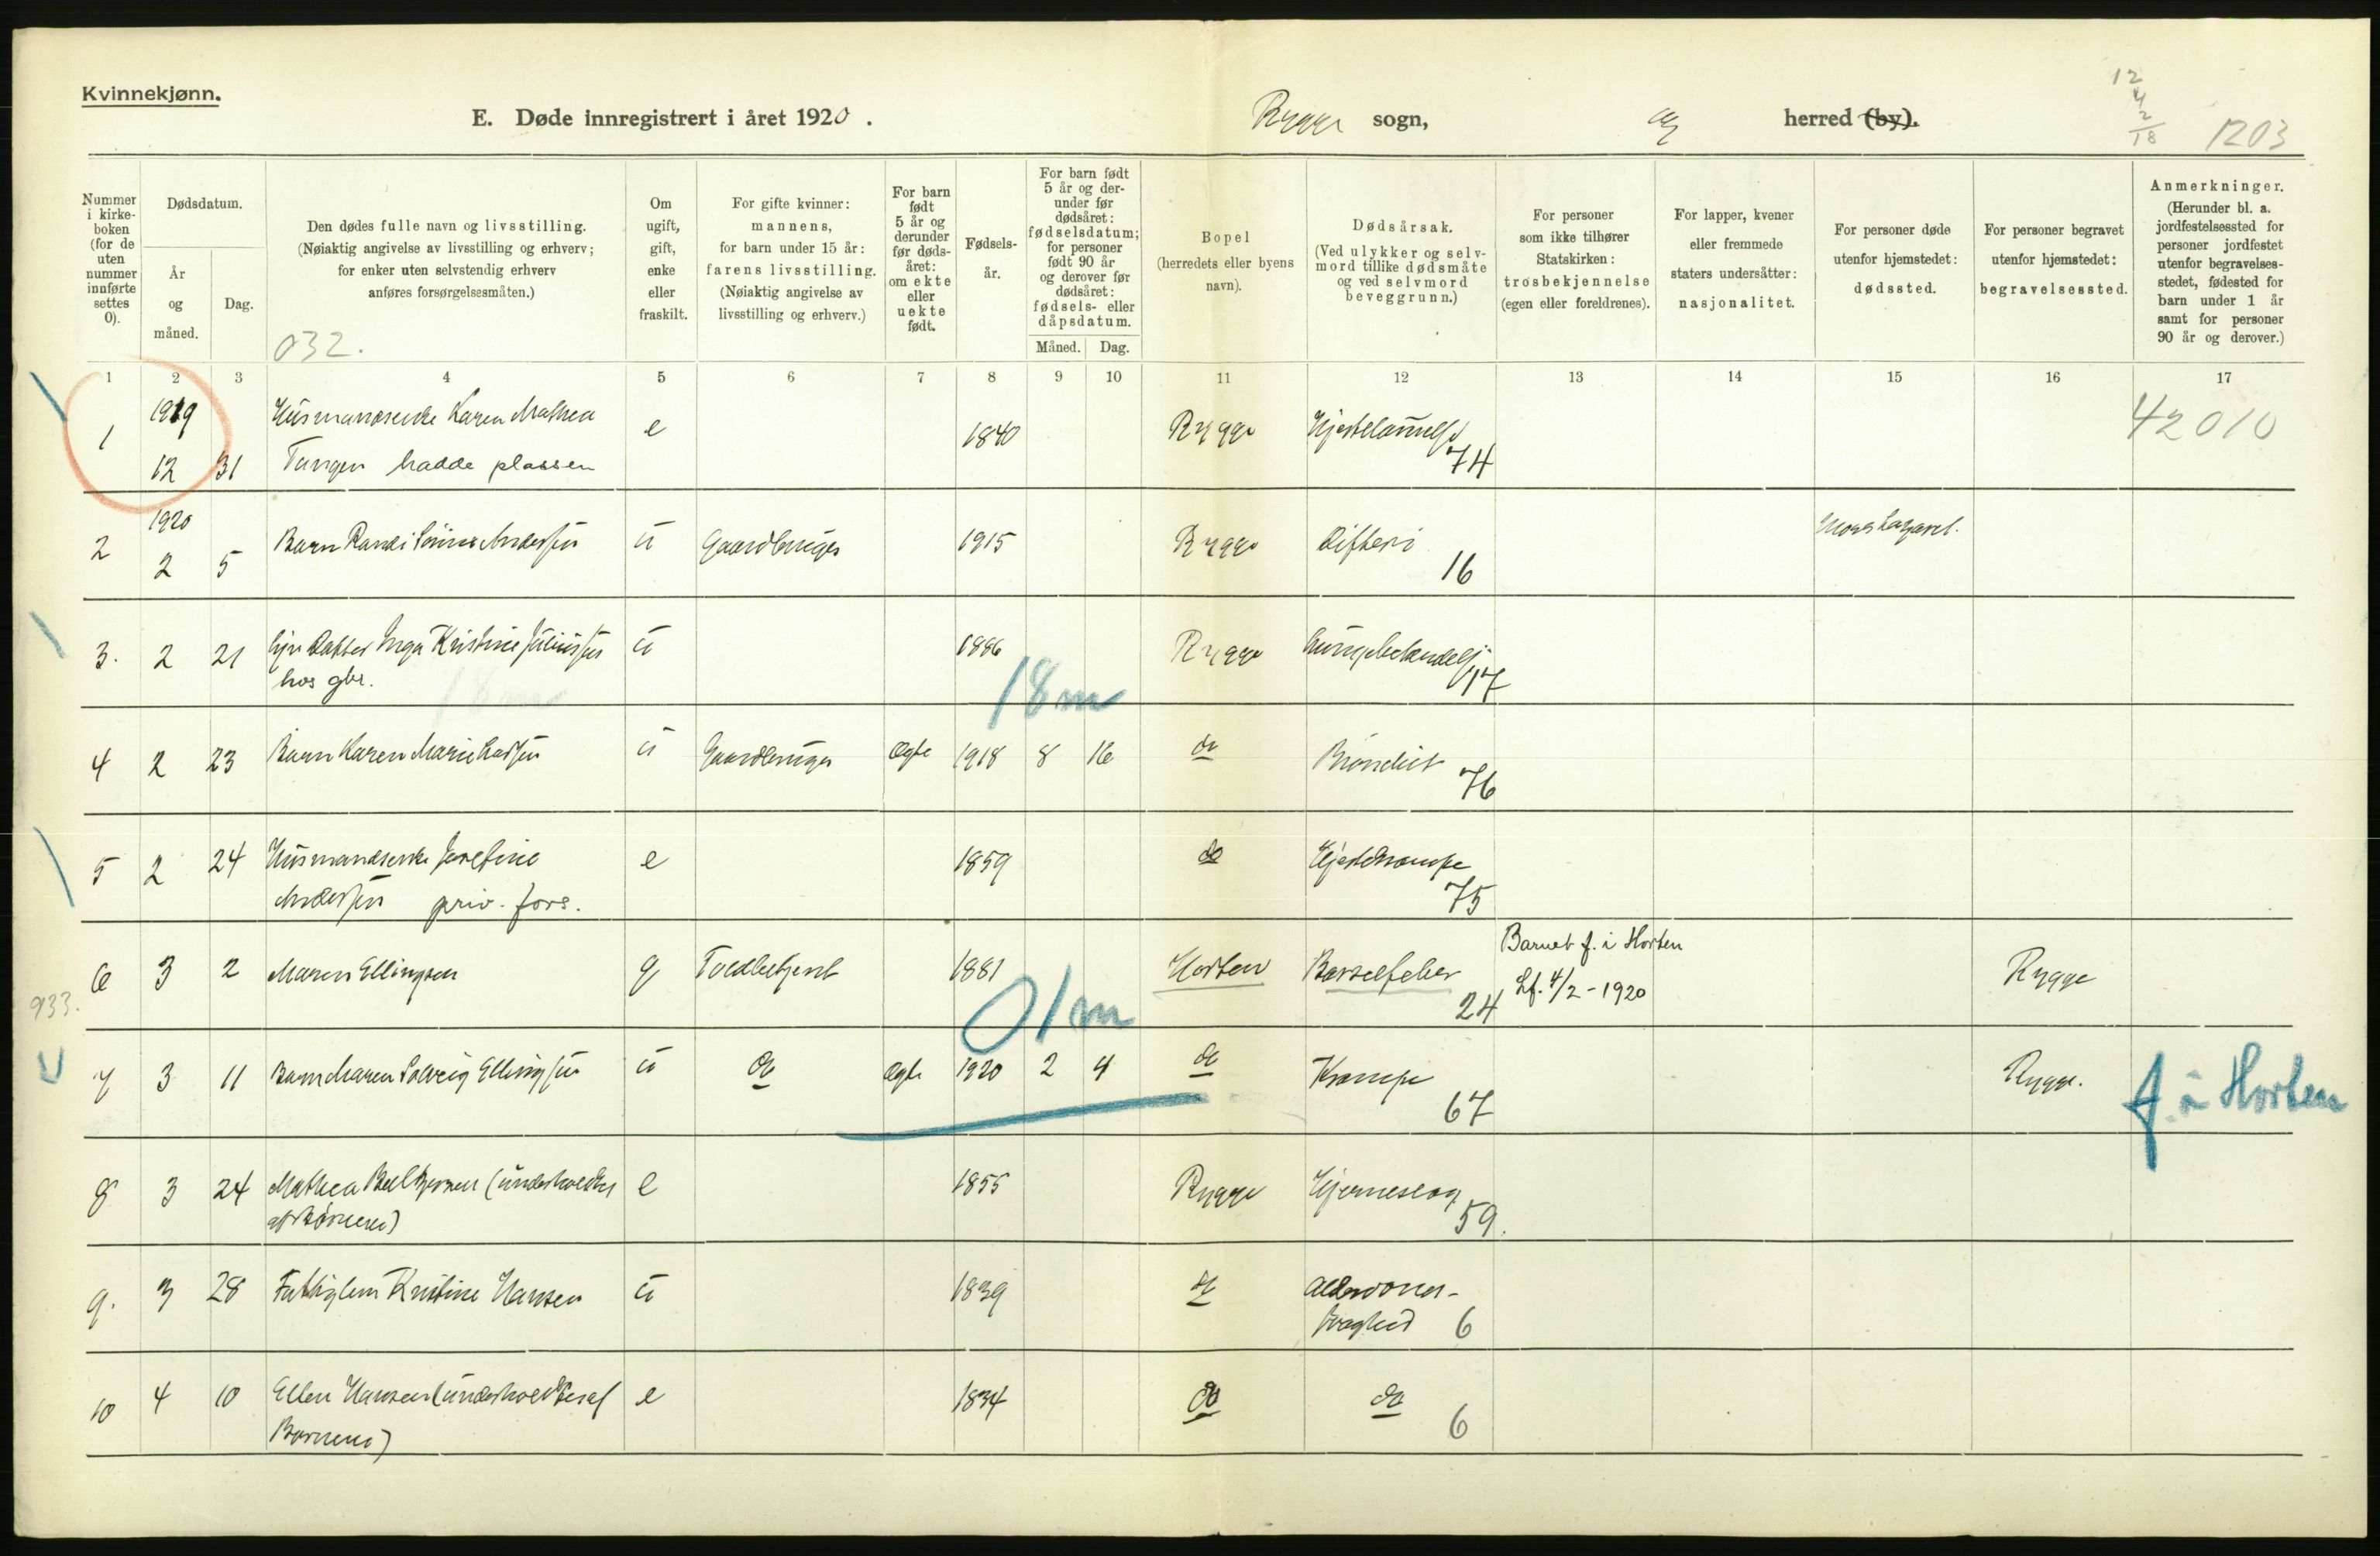 Kvinnekjønn.
E. Døde innregistrert i året 1920. Rygge sogn, og herred (by).
12
4
2
18
1203
Nummer i kirkeboken (for de uten nummer innførte settes 0).
Dødsdatum.
År og måned.
Dag.
Den dødes fulle navn og livsstilling.
(Nøiaktig angivelse av livsstilling og erhverv;
for enker uten selvstendig erhverv
anføres forsørgelsesmåten.)
032.
Om ugift, gift, enke eller fraskilt.
For gifte kvinner: mannens, for barn under 15 år: farens livsstilling. (Nøiaktig angivelse av livsstilling og erhverv.)
For barn født 5 år og derunder før dødsåret: om ekte eller uekte født.
Fødselsår.
For barn født 5 år og derunder før dødsåret: fødselsdatum; for personer født 90 år og derover før dødsåret: fødsels- eller dåpsdatum.
Måned. Dag.
Bopel (herredets eller byens navn).
Dødsårsak. (Ved ulykker og selvmord tillike dødsmåte og ved selvmord beveggrunn.)
For personer som ikke tilhører Statskirken: trosbekjennelse (egen eller foreldrenes).
For lapper, kvener eller fremmede staters undersåtter: nasjonalitet.
For personer døde utenfor hjemstedet: dødssted.
For personer begravet utenfor hjemstedet: begravelsessted.
Anmerkninger. (Herunder bl. a. jordfestelsessted for personer jordfestet utenfor begravelsesstedet, fødested for barn under 1 år samt for personer 90 år og derover.)
1 2 3 4 5 6 7 8 9 10 11 12 13 14 15 16 17
1 1919 12 31 Husmandsenke Karen Mathea e 1840 Rygge Hjertelammelse 74 42010
Tangen hadde plassen
2 1920 2 5 Barn Randi Andersen u Gaardbruger 1915 Rygge Difteri 16 Moss Lazaret.
3. 2 21 Datter Inga Kristine Juliussen u 1886 Rygge Lungebetændelse 17
hos gbr.
18 m
4 2 23 Barn Karen Marie u Gaardbruger Ægte 1918 8 16 do Bronchit 76
5 2 24 Husmandsenke Josefine e 1859 do Hjertekrampe 75
Andersen priv. fors.
6 3 2 Maren Ellingsen g Toldbetjent 1881 Horten Barselfeber 24 Barnet f. i Horten Rygge
Lf. 4/2-1920
933.
01 m
7 3 11 Barn Maren Solveig Ellingsen u do Ægte 1920 2 4 do Krampe 67 Rygge. f. i Horten
8 3 24 Mathea (underholdtes e 1855 Rygge Hjerneslag 59.
af Børnene)
9. 3 28 Fattiglem Kristine Hansen u 1839 do Alderdoms-
svaghed 6
10 4 10 Ellen Hansen (underholdtes af e 1834 do do 6
Børnene)